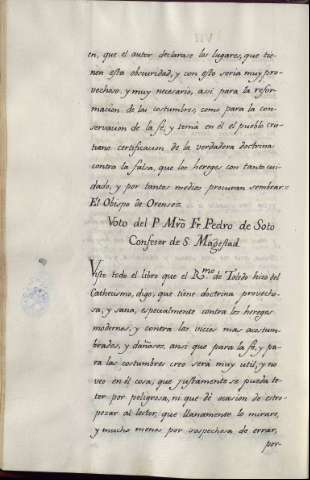 en, que el autor declarase los lugares, que tie-
nen esta obscuridad, y con esto seria muy pro-
vechoso, y muy necesario, asi para la refor-
macion de las costumbres, como para la con-
servacion de la fé, y terná en él el pueblo cris-
tiano certificacion de la verdadera doctrina
contra la falsa, que los hereges con tanto cui-
dado, y por tantos medios procuran sembrar=
El Obispo de Orense=
Voto del P. Mrõ Fr. Pedro de Soto
Confesor de S. Magestad.
Visto todo el libro que el Rmo de Toledo hizo del
Cathecismo, digo, que tiene doctrina provecho-
sa, y sana, especialmente contra los hereges
modernos, y contra los vicios mas acostum-
brados, y dañosos, ansi que para la fé, y pa-
ra las costumbres creo será muy util, y no
veo en él cosa, que justamente se pueda te-
ner por peligrosa, ni que dé ocasion de estro-
pezar al lector, que llanamente lo mirare,
y mucho menos por sospechosa de errar,
por-